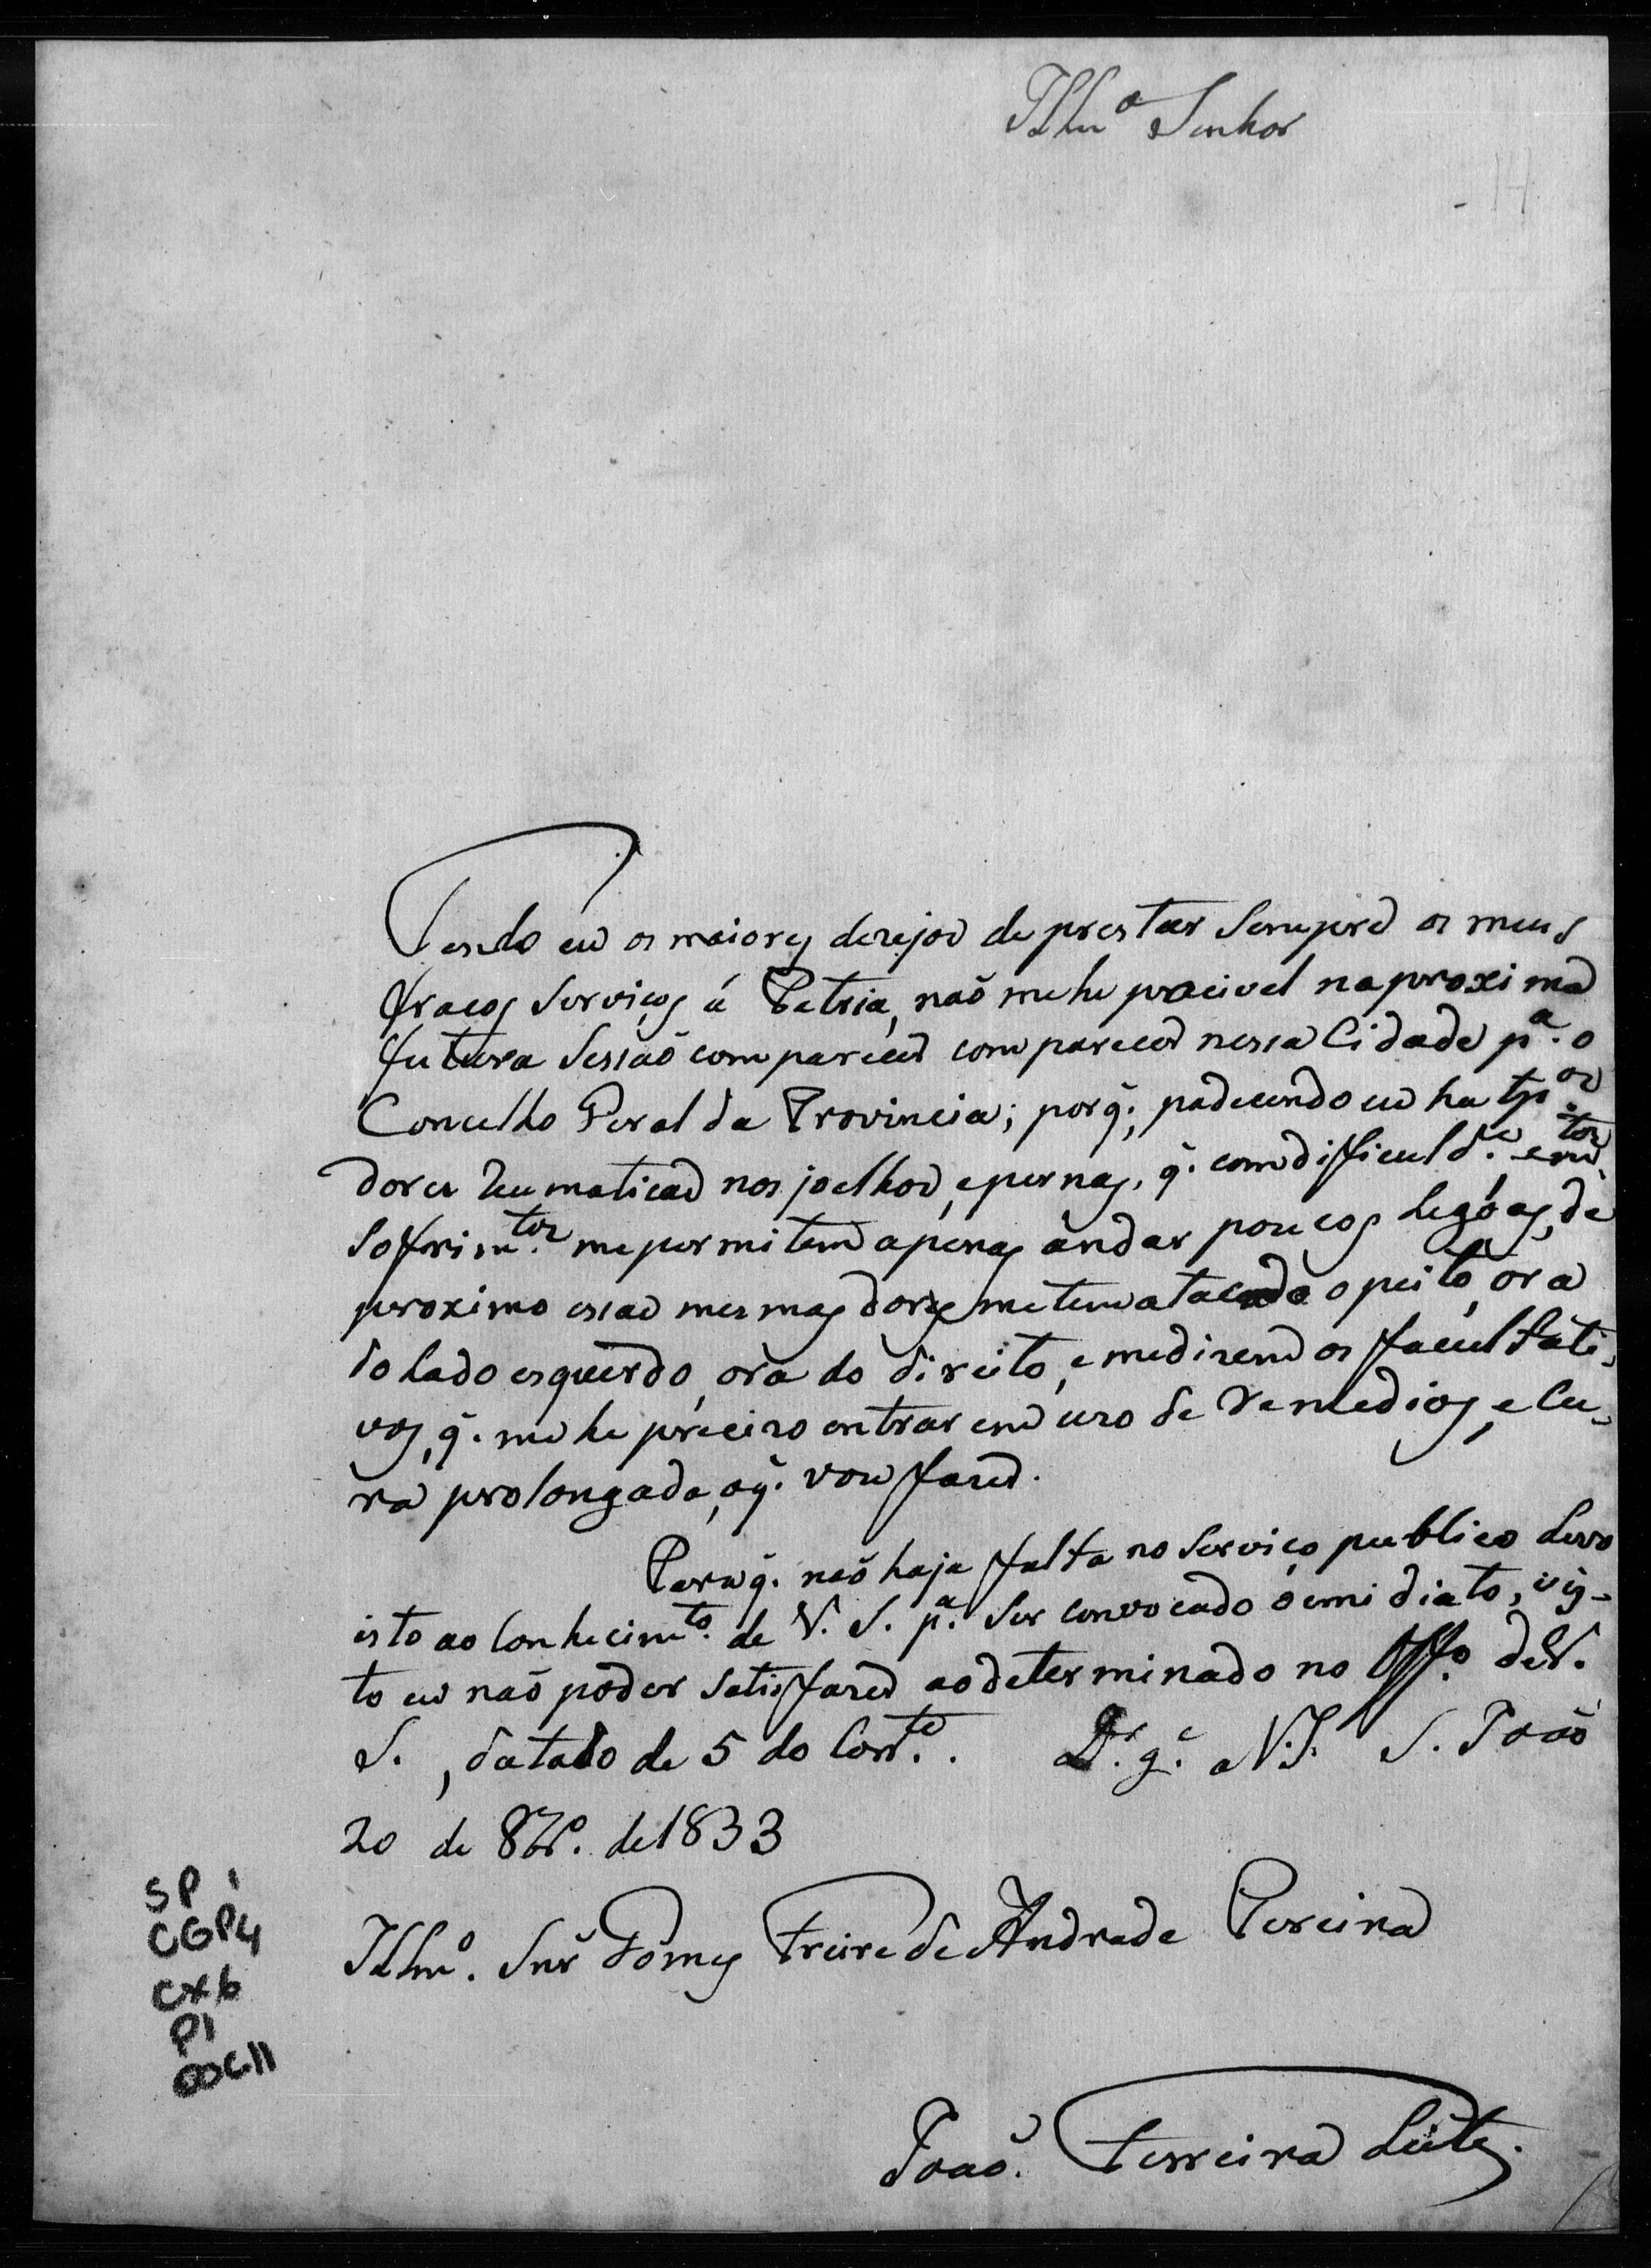 Illmº Senhor
- 14
Tendo eu os maiores dezejos de prestar sempre os meus
fracos serviços á Patria, naõ me he pocivel na proxima
futura Sessaõ comparecer comparecer nessa Cidade pª. o
Concelho Geral da Provincia; porq̃. padecendo eu ha tpos.
dores reumaticas nos joelhos, e pernas, q̃. com dificulde.
sofrimtos. me permitem apenas andar poucos legóas, de
proximo essas mesmas dores me tem atacado o peito, ora
do lado esquerdo, ora do direito, e me dizem os facultati-
vos, q̃. me he precizo entrar em uzo de remedios, e cu-
ra prolongada, oq̃. vou fazer.
Paraq̃. naõ haja falta no serviço publico levo
isto ao conhecimto. de V. S. pª. ser convocado o emidiato, vis-
to eu naõ poder satisfazer ao determinado no Offº. de V.
S., datado de 5 do Corrte. Ds. ge. a V.S. S. Joaõ
20 de 8bro. de 1833
Illmº. Snr̃ Gomes Freire de Andrade
Joaõ. Ferreira Leite.
SP 1
CGP4
CX6
P1
DOC11